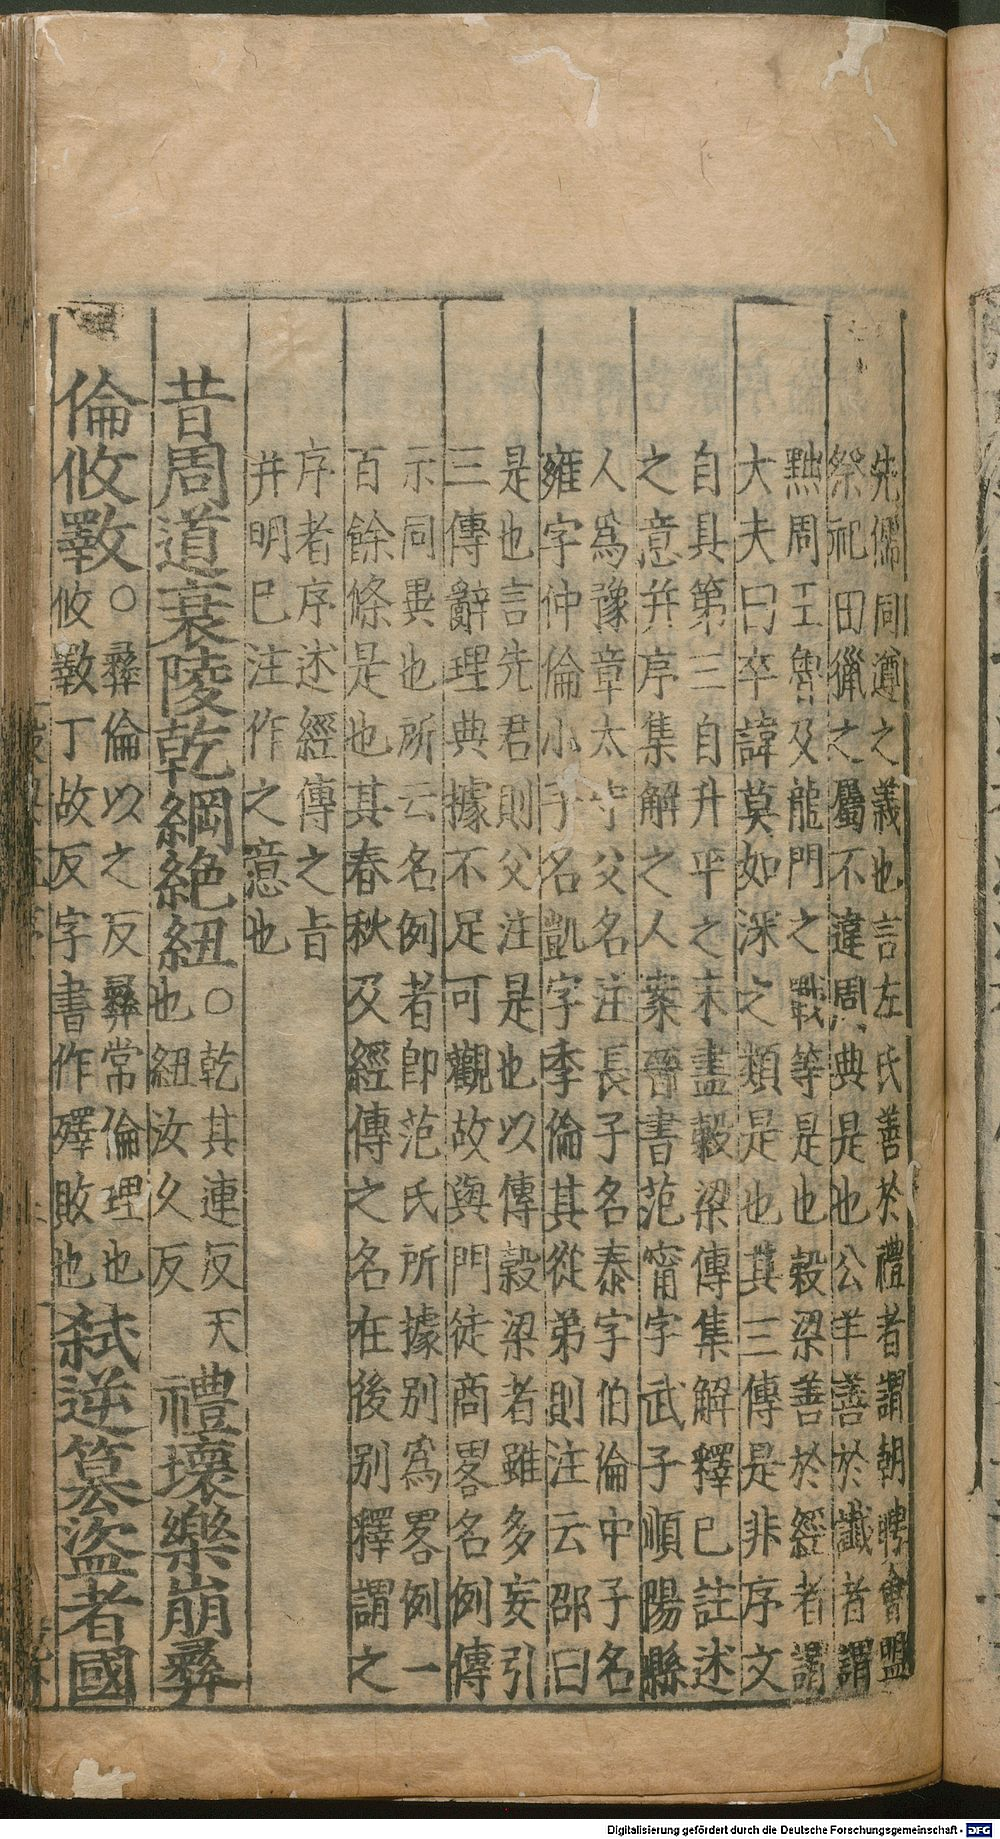 先儒同遵之義也言左氏善於禮者謂朝聘會盟
祭祀田獵之屬不違周典是也公羊善於讖者謂
黜周王魯及龍門之戰等是也穀梁善於經者謂
大夫曰卒諱莫如深之類是也其三傳是非序文
自具第三自升平之末盡穀梁傳集解釋已註述
之意并序集解之人案晉書范甯字武子順陽縣
人為豫章太守父名汪長子名泰字伯倫中子名
雍字仲倫小子名凱字季倫其從弟則注云邵曰
是也言先君則父注是也以傳穀梁者雖多妄引
三傳辭理典據不足可觀故與門徒商畧名例傳
示同異也所云名例者即范氏所據別為畧例一
百餘條是也其春秋及經傳之名在後別釋謂之
序者序述經傳之旨
并明已注作之意也
昔周道衰陵乾綱絶紐〇乾其連反天
也紐汝久反禮壞樂崩彞
倫攸斁〇彞倫以之反彞常倫理也
攸斁丁故反字書作殬敗也弑逆篡盜者國
Digitalisierung gefördert durch die Deutsche Forschungsgemeinschaft - DFG